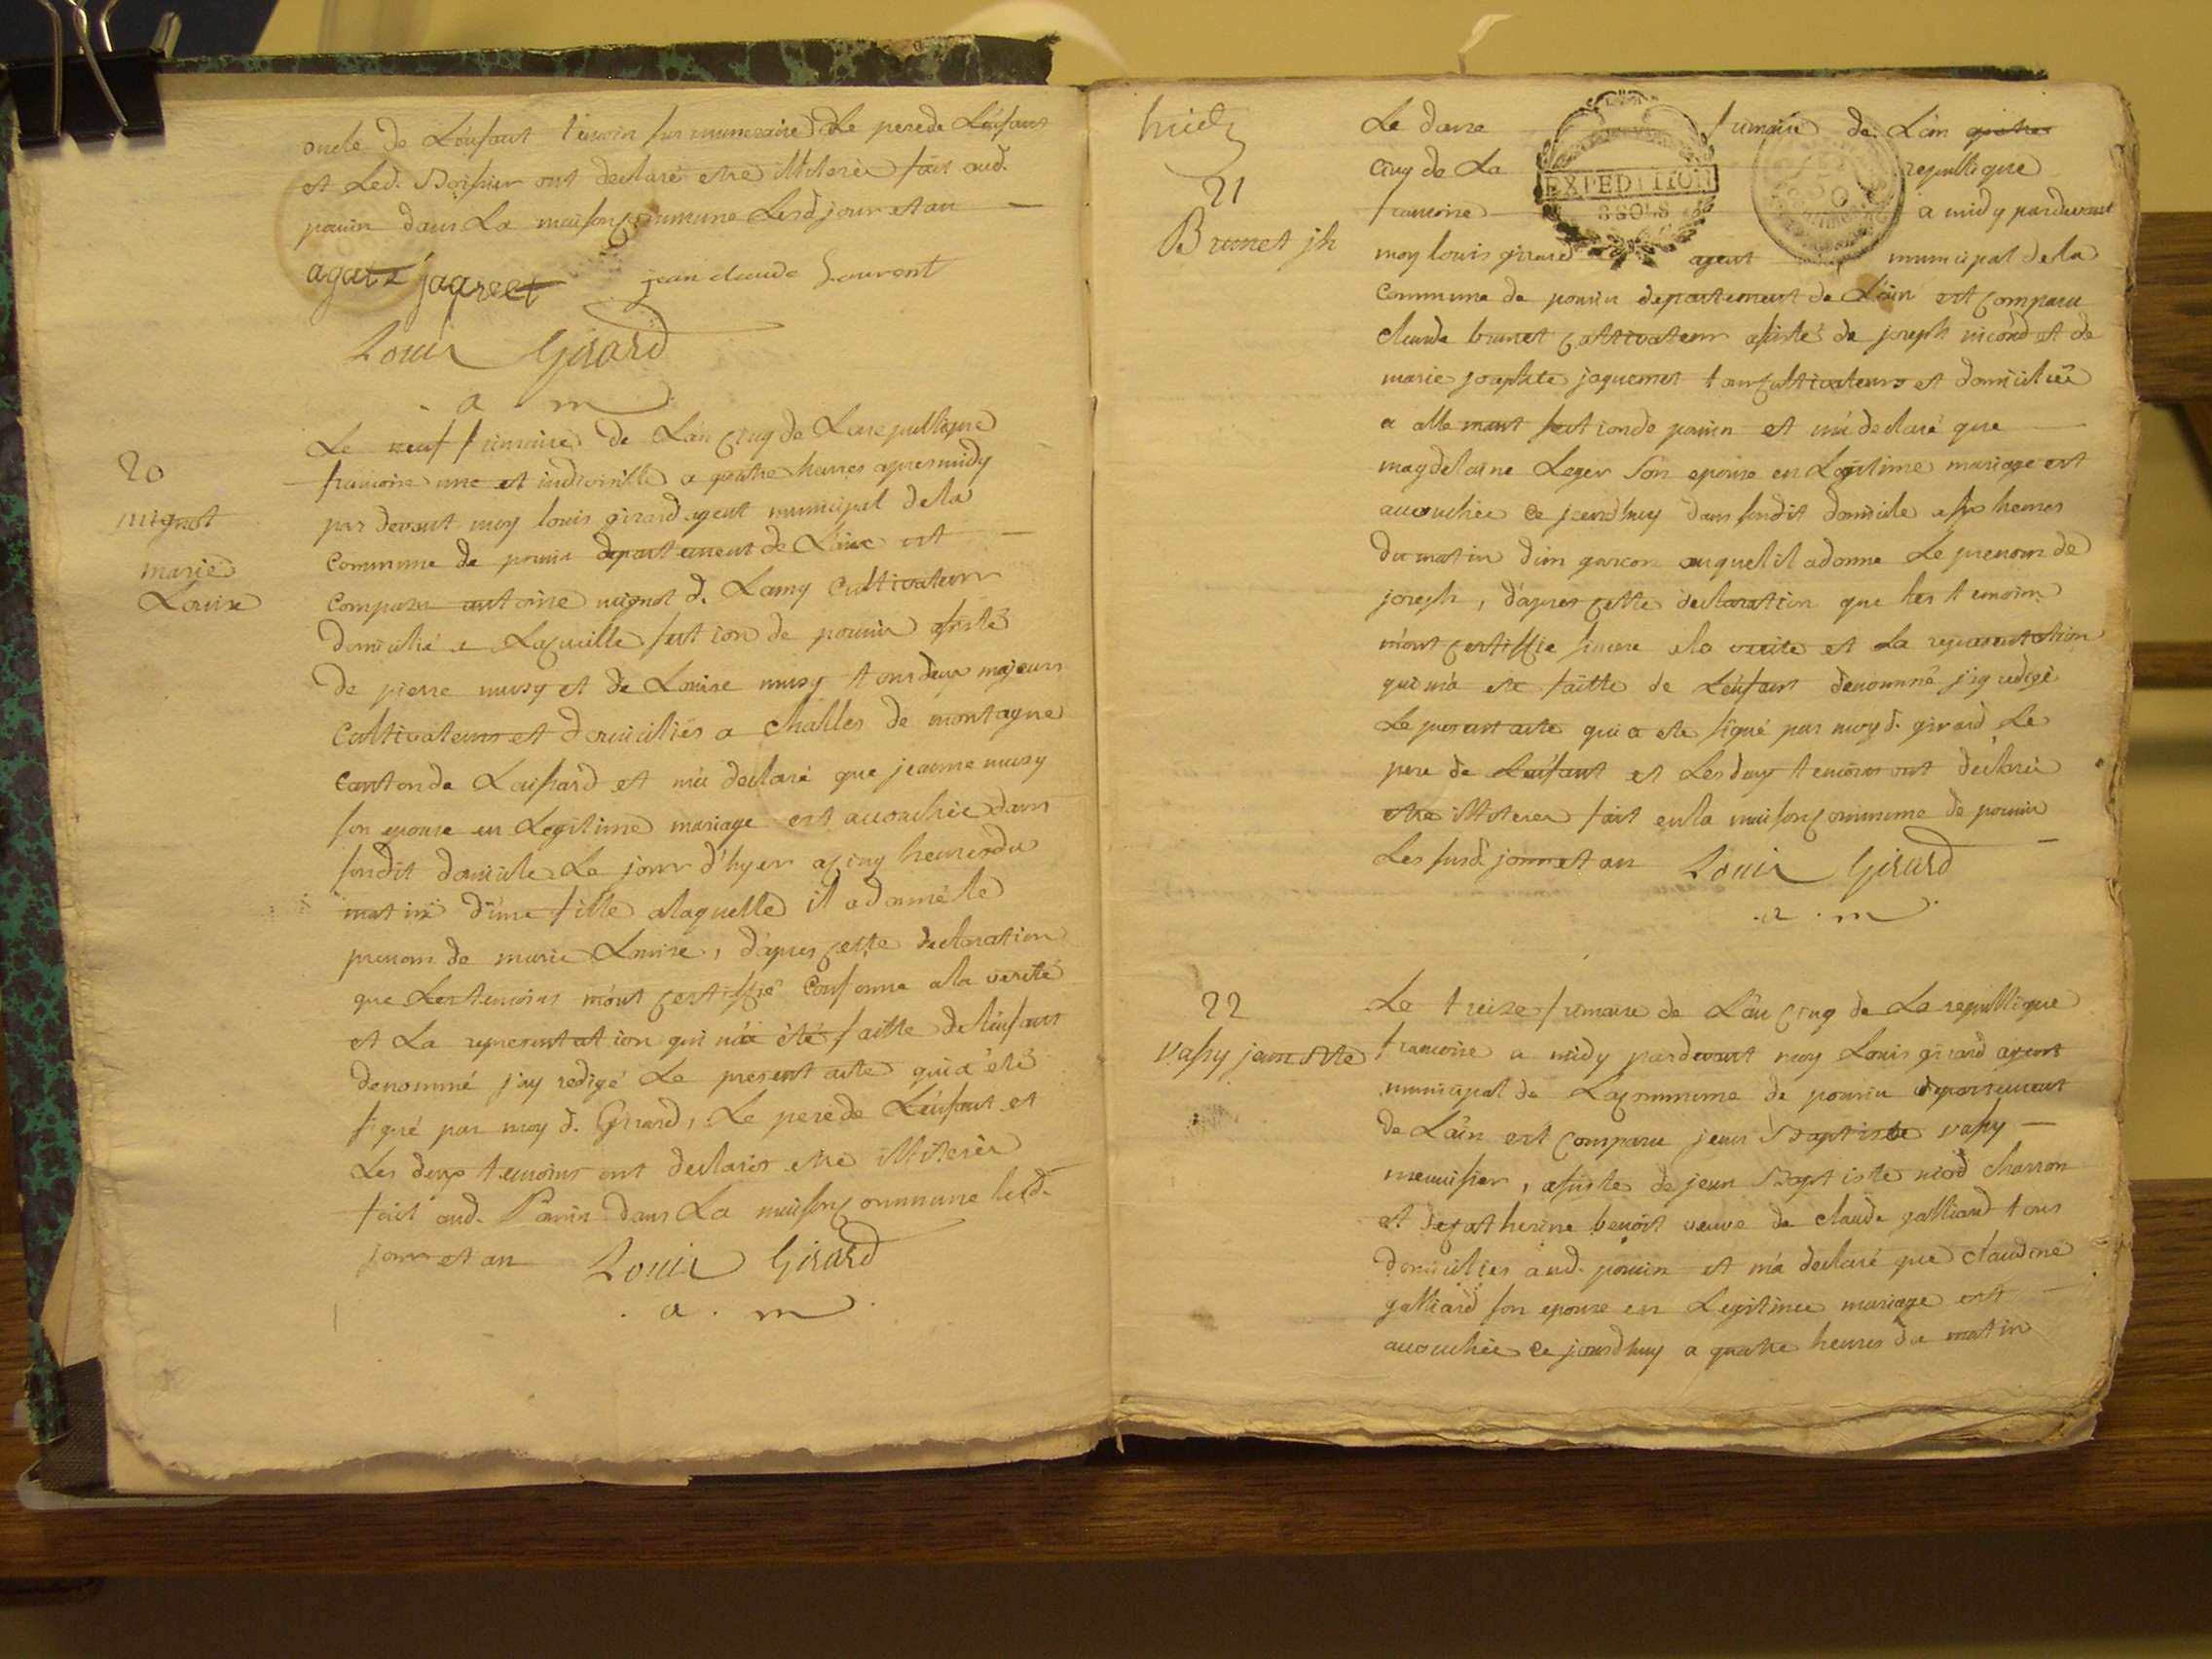 oncle de L'enfant temoin surnumeraire Le pere de L'enfant
et Led. Boissier ont declaré etre illiterés fait aud.
poncin dans La maison commune Lesd jour et an
agate jaqreet jean claude Laurent
Louis Girard
a m
20
mignot
marie
Louise
Le neuf frimaire de L'an cinq de La republique
francoise une et indivisible a quatre heures apres midy
par devant moy louis girard agent municipal de la
commune de poncin departement de L'ain est
comparu antoine mignot d. Lamy cultivateur
domicilié a La cueille section de poncin assisté
de pierre musy et de Louise musy tous deux majeurs
cultivateurs et domiciliés a challes de montagne
canton de Laissard et m'a declaré que jeanne musy
son epouse en Legitime mariage est accouchée dans
sondit domicile Le jour d'hyer a cinq heures du
matin d'une fille a laquelle il a donné le
prenom de marie Louise, d'apres cette declaration
que Les temoins m'ont certiffié conforme a la verité
et La representation qui m'a été faitte de l'enfant
denommé j'ay redigé Le present acte qui a été
signé par moy d. Girard, Le pere de L'enfant et
Les deux temoins ont declarés etre illiterés
fait aud. Poncin dans La maison commune lesd.
jour et an Louis Girard
. a . m .
huit
21
Brunet jh
Le douze frimaire de L'an quatre
cinq de La republique
francoise a midy pardevant
moy louis girard agent municipal de la
commune de poncin departement de L'ain est comparu
claude brunet cultivateur assisté de joseph nicoud et de
marie josephte jaquemet tous cultivateurs et domiciliés
a allement section de poncin et m'a declaré que
magdelaine Leger son epouse en Legitime mariage est
accouchée ce jourdhuy dans sondit domicile a six heures
du matin d'un garcon auquel il a donne Le prenom de
joseph, d'apres cette declaration que les temoins
m'ont certiffie sincere a la verite et La representation
qui m'a ete faitte de L'enfant denommé j'ay redigé
Le present acte qui a ete signé par moy d. girard Le
pere de L'enfant et Les deux temoins ont declaré
etre illiteres fait en la maison commune de poncin
Les susd. jour et an Louis Girard
. a . m .
22
vassy jean Bte
Le treize frimaire de L'an cinq de La republique
francoise a midy pardevant moy Louis girard agent
municipal de La commune de poncin departement
de L'ain est comparu jean Baptiste vassy
menuisier, assisté de jean Baptiste niod charron
et de catherine benoit veuve de claude galliard tous
domiciliés aud. poncin et m'a declaré que claudine
galliard son epouse en Legitime mariage est
accouchée ce jourdhuy a quatre heures du matin
EXPEDITION
3 SOLS